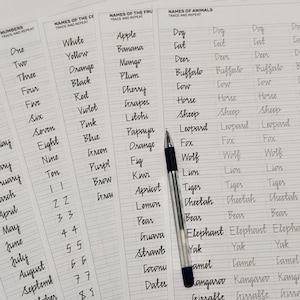 NUMBERS
TRACE AND REPEAT
One
Two
Three
Four
Five
Six
Seven
Eight
Nine
Ten
11
22
33
44
55
66
77
March
April
May
June
July
August
NAMES OF THE CO
TRACE AND REPEAT
White
Yellow
Orange
Black
Red
Violet
Pink
Blue
Green
Purpl
Gray
NAMES OF THE FRU
TRACE AND REPEAT
Apple
Banana
Mango
Plum
Cherry
Grapes
Litchi
Papaya
Orange
Fig
Kiwi
Apricot
Lemon
Pear
Guava
Dates
NAMES OF ANIMALS
TRACE AND REPEAT
Dog Dog Dog Dog
Cat Cat Cat Cat
Deer Deer Deer Deer
Buffalo Buffalo Buffalo
Cow Cow Cow Cow
Horse Horse Horse Horse
Sheep Sheep Sheep Sheep
Leopard Leopard Leopard
Fox Fox Fox
Wolf Wolf Wolf
Lion Lion Lion
Tiger Tiger Tiger
Cheetah Cheetah Cheetah
Bear Bear Bear
Elephant Elephant Elephant
Yak Yak Yak
Camel Camel Camel
Kangaroo Kangaroo Kangaroo